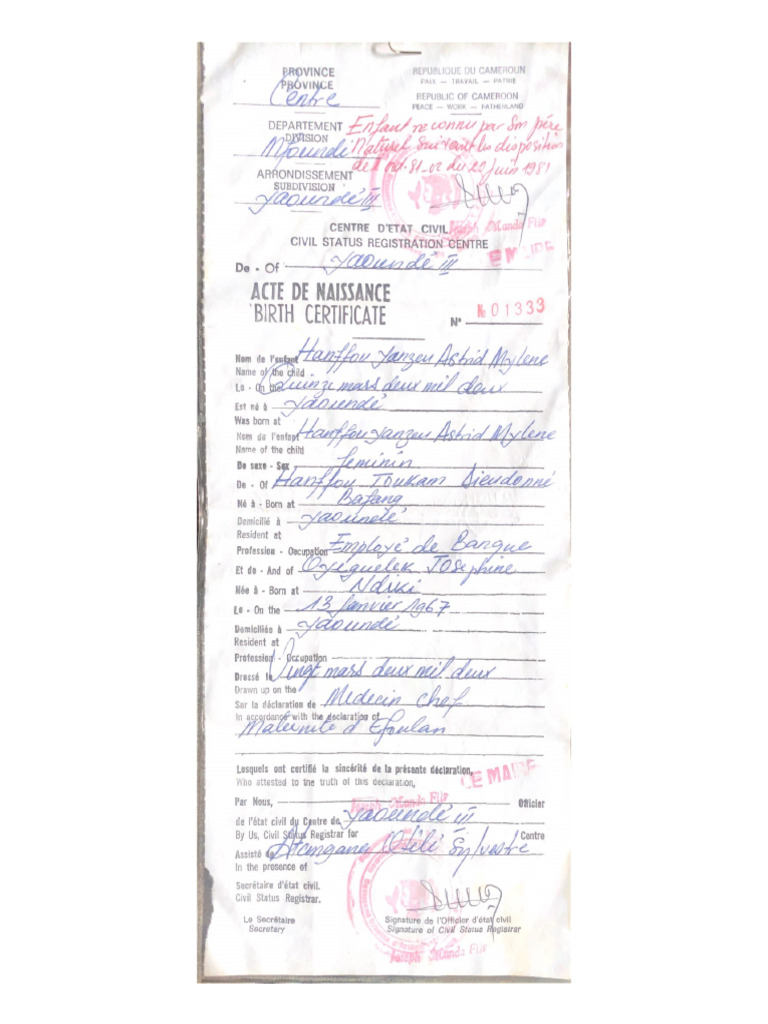 PROVINCE
PROVINCE
Centre
REPUBLIQUE DU CAMEROUN
PAIX — TRAVAIL — PATRIE
REPUBLIC OF CAMEROON
PEACE — WORK — FATHERLAND
DEPARTEMENT
DIVISION
Mfoundi
Enfant reconnu par son père
Naturel suivant les disposition
de l'ord. 81-02 du 29 juin 1981
ARRONDISSEMENT
SUBDIVISION
Yaoundé III
CENTRE D'ETAT CIVIL
CIVIL STATUS REGISTRATION CENTRE
De - Of Yaoundé III
ACTE DE NAISSANCE
BIRTH CERTIFICATE
N° No 01333
Nom de l'enfant Hanffou Yanzeu Astrid Mylene
Name of the child
Le - On the Quinze mars deux mil deux
Est né à Yaoundé
Was born at
Nom de l'enfant Hanffou Yanzeu Astrid Mylene
Name of the child
De sexe - Sex feminin
De - Of Hanffou Toukam Dieudonné
Né à - Born at Bafang
Domicilié à Yaoundé
Resident at
Profession - Occupation Employé de Banque
Et de - And of Oyiguelek Josephine
Née à - Born at Ndiki
Le - On the 13 Janvier 1967
Domiciliée à Yaoundé
Resident at
Profession - Occupation
Dressé le Vingt mars deux mil deux
Drawn up on the
Sur la déclaration de Medecin chef
In accordance with the declaration of
Maternité d'Efoulan
Lesquels ont certifié la sincérité de la présente déclaration,
Who attested to the truth of this declaration,
LE MAIRE
Par Nous, Officier
de l'état civil du Centre de Yaoundé III
By Us, Civil Status Registrar for Centre
Assisté de Sylvestre
In the presence of
Secrétaire d'état civil.
Civil Status Registrar.
Le Secrétaire
Secretary
Signature de l'Officier d'état civil
Signature of Civil Status Registrar